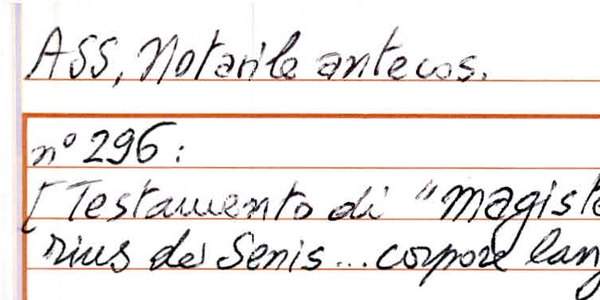 ASS, Notarile antecos.
n° 296:
[Testamento di "magiste
rius de Senis... corpore lang